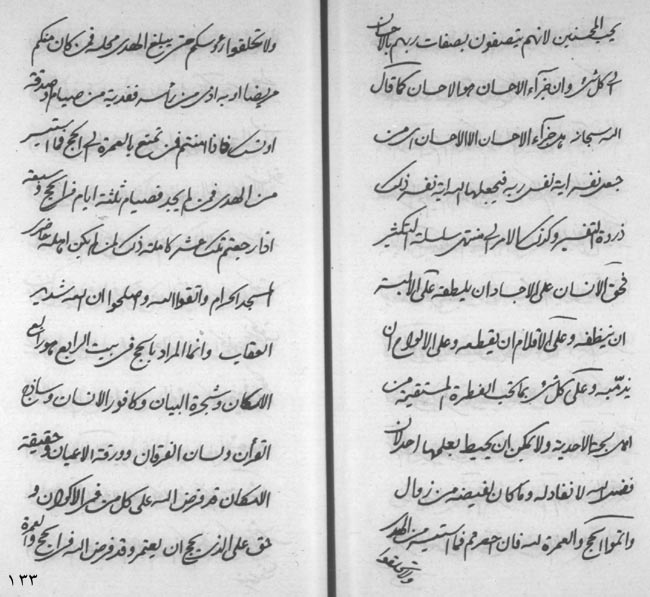 يحب المحسنين لانهم يتصفون بصفات ربهم بالاحسان
الى كل شئ وان جزآء الاحسان هو الاحسان كما قال
الله سبحانه هل جزآء الاحسان الا الاحسان اى من
جعل نفسه اية لنفس ربه فيجعلها الله اية نفسه ذلك
ذروة التفسير وكذلك الامر الى منتهى سلسلة التكثير
فحق الانسان على الاجساد ان يلطفه وعلى الالبسة
ان ينظفه وعلى الاقلام ان يقطعه وعلى الالواح ان
يذهبه وعلى كل شئ بما يحب الفطرة المستقيمة من
بحر الاحدية ولا يمكن ان يحيط بعلمها احد لان
فضل الله لا نفاد له وما كان لفيضه من زوال
واتموا الحج والعمرة لله فان احصرتم فما استيسر من الهدى
ولا تحلقوا
ولا تحلقوا رؤسكم حتى يبلغ الهدى محله فمن كان منكم
مريضا او به اذى من راسه ففدية من صيام او صدقة
او نسك فاذا امنتم فمن تمتع بالعمرة الى الحج فما استيسر
من الهدى فمن لم يجد فصيام ثلثة ايام فى الحج وسبعة
اذا رجعتم تلك عشرة كاملة ذلك لمن لم يكن اهله حاضرى
المسجد الحرام واتقوا الله وعلموا ان الله شديد
العقاب وانما المراد بالحج فى بيت الرابع هو
الامكان وشجرة البيان وكافور الانسان وساذج
القرآن ولسان الفرقان وورقة الاعيان وحقيقة
الامكان قد فرض الله على كل من فى الاكوان و
حق على الذى يحج ان يعتمر وقد فرض الله فى الحج والعمرة
١٣٣